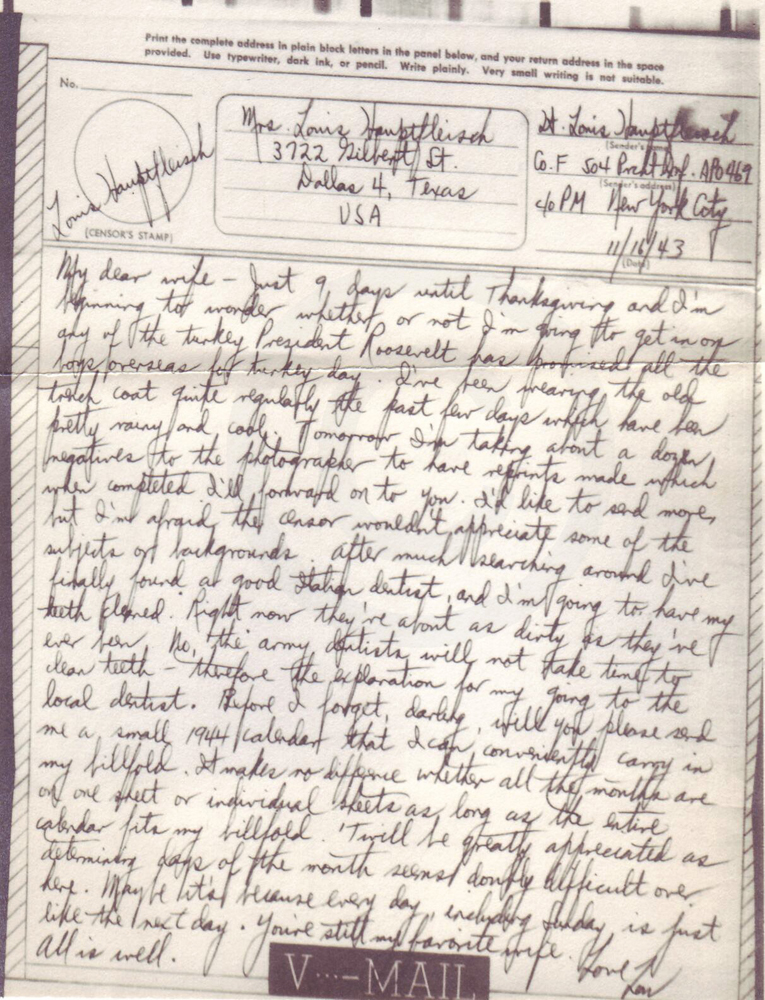 Print the complete address in plain block letters in the panel below, and your return address in the space
provided. Use typewriter, dark ink, or pencil. Write plainly. Very small writing is not suitable.
No.
Louis Hauptfleisch
(CENSOR'S STAMP)
Mrs. Louis Hauptfleisch
3722 Gilbert St.
Dallas 4, Texas
USA
Lt. Louis Hauptfleisch
(Sender's name)
Co. F 504 Prcht Inf. APO 469
(Sender's address)
c/o PM New York City
11/16/43
(Date)
My dear wife – Just 9 days until Thanksgiving and I'm
beginning to wonder whether or not I'm going to get in on
any of the turkey President Roosevelt has promised all the
boys overseas for turkey day. I've been wearing the old
trench coat quite regularly the past few days which have been
pretty rainy and cool. Tomorrow I'm taking about a dozen
negatives to the photographer to have reprints made which
when completed I'll forward on to you. I'd like to send more,
but I'm afraid the censor wouldn't appreciate some of the
subjects or backgrounds. After much searching around I've
finally found a good Italian dentist, and I'm going to have my
teeth cleaned. Right now they're about as dirty as they've
ever been. No, the army dentists will not take time to
clean teeth – therefore the explanation for my going to the
local dentist. Before I forget, darling, will you please send
me a small 1944 calendar that I can conveniently carry in
my billfold. It makes no difference whether all the months are
on one sheet or individual sheets as long as the entire
calendar fits my billfold. 'Twill be greatly appreciated as
determining days of the month seems doubly difficult over
here. Maybe it's because every day, including Sunday, is just
like the next day. You're still my favorite wife.
All is well.
Love Lou
V···–MAIL